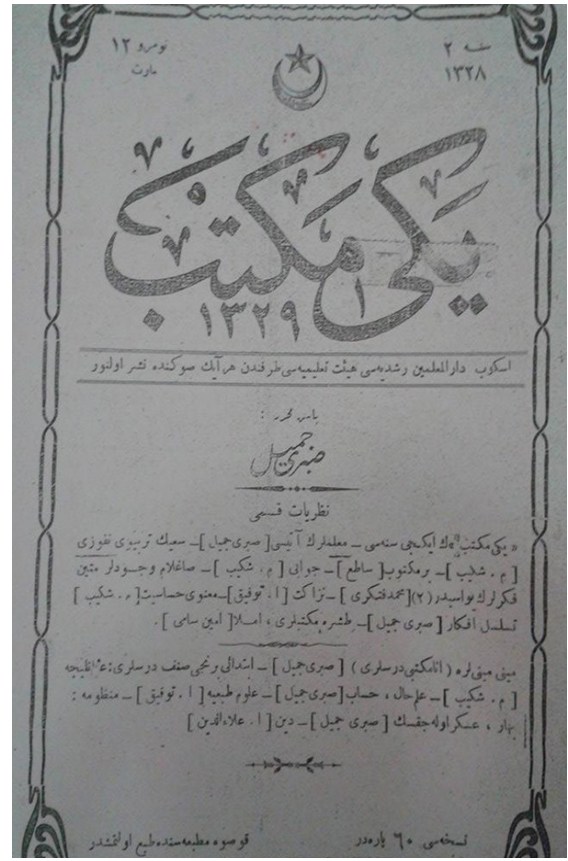 سنه ٢ نومرو ١٢
١٣٢٨ مارت
يكى مكتب
١٣٢٩
اسكوب دارالمعلمين رشديه‌سى هيئت تعليميه‌سى طرفندن هر آيك صوكنده نشر اولنور
باش محرر :
صبرى جميل
نظريات قسمى
« يكى مكتب »ك ايكنجى سنه‌سى – معلملرك آتيسى [ صبرى جميل ] – سعيك تربيوى نفوذى
[ م . شكيب ] – بر مكتوب [ ساطع ] – جوابى [ م . شكيب ] – صاغلام وجودلر متين
فكرلرك يواسيدر (٢) [ محمد فتكرى ] – نزاكت [ ا . توفيق ] – معنوى حساسيت [ م . شكيب ]
تسلسل افكار [ صبرى جميل ] – طشره مكتبلرى ، املا [ امين سامى ] .
مينى مينى لره ( انا مكتبى درسلرى ) [ صبرى جميل ] – ابتدائى برنجى صنف درسلرى :
[ م . شكيب ] – علم حال ، حساب [ صبرى جميل ] – علوم طبيعيه [ ا . توفيق ] – منظومه :
بهار ، عسكر اوله جغسك [ صبرى جميل ] – دين [ ا . علاءالدين ]
نسخه‌سى ٦٠ پاره‌در قوصوه مطبعه‌سنده طبع اولنمشدر